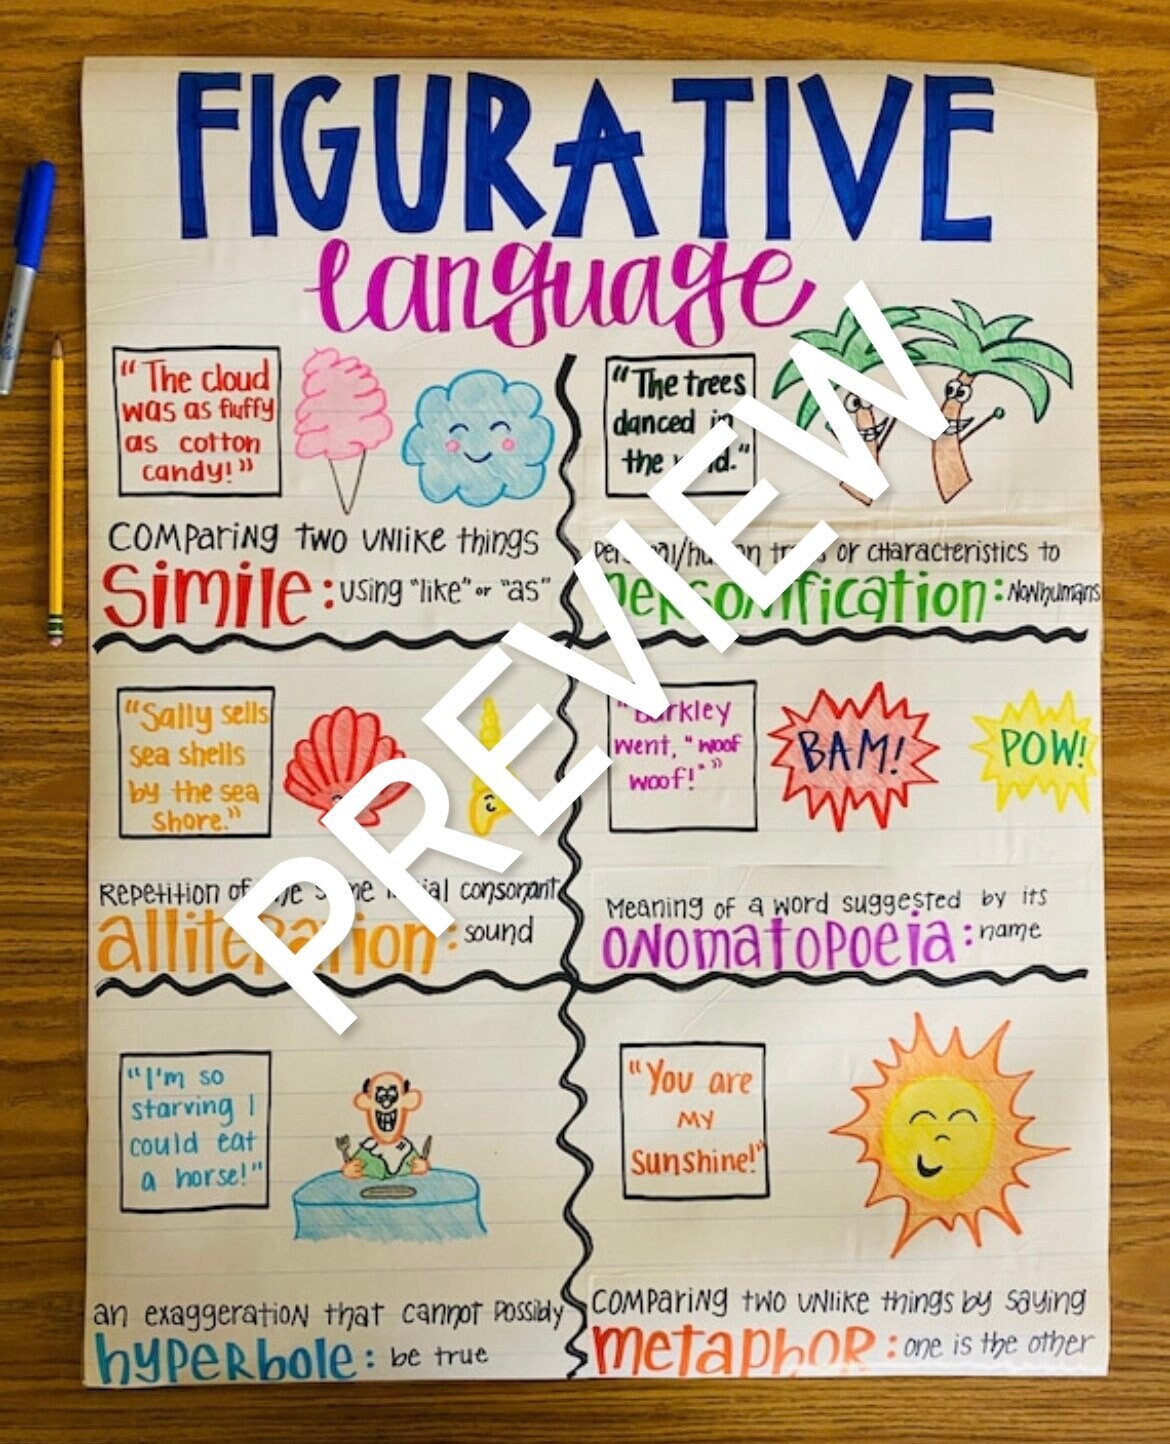 FIGURATIVE
language
"The cloud
was as fluffy
as cotton
candy!"
COMPARING TWO UNLIKE things
Simile: using "like" or "as"
"The trees
danced in
the
or characteristics to
personification: Nonhumans
"Sally sells
sea shells
by the sea
shore."
Repetition of consonant
alliteration: sound
"Barkley
went, "woof
woof!""
BAM!
POW!
Meaning of a word suggested by its
onomatopoeia: name
"I'm so
starving I
could eat
a horse!"
an exaggeration that cannot possibly
hyperbole: be true
"You are
my
sunshine!"
COMPARING TWO UNLIKE things by saying
metaphor: one is the other
PREVIEW